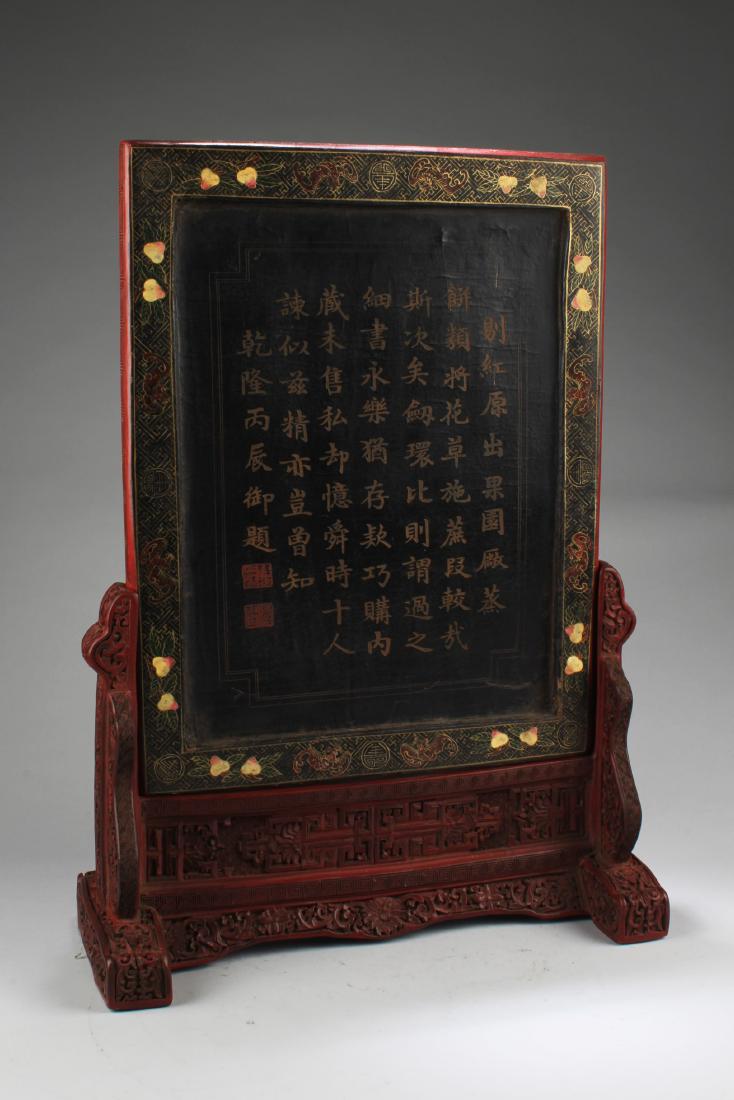 剔紅原出果園廠蒸
餅類將花草施蔗段較哉
斯次矣劒環比則謂過之
細書永樂猶存欵巧購內
藏未售私却憶舜時十人
諫似茲精亦豈曾知
乾隆丙辰御題